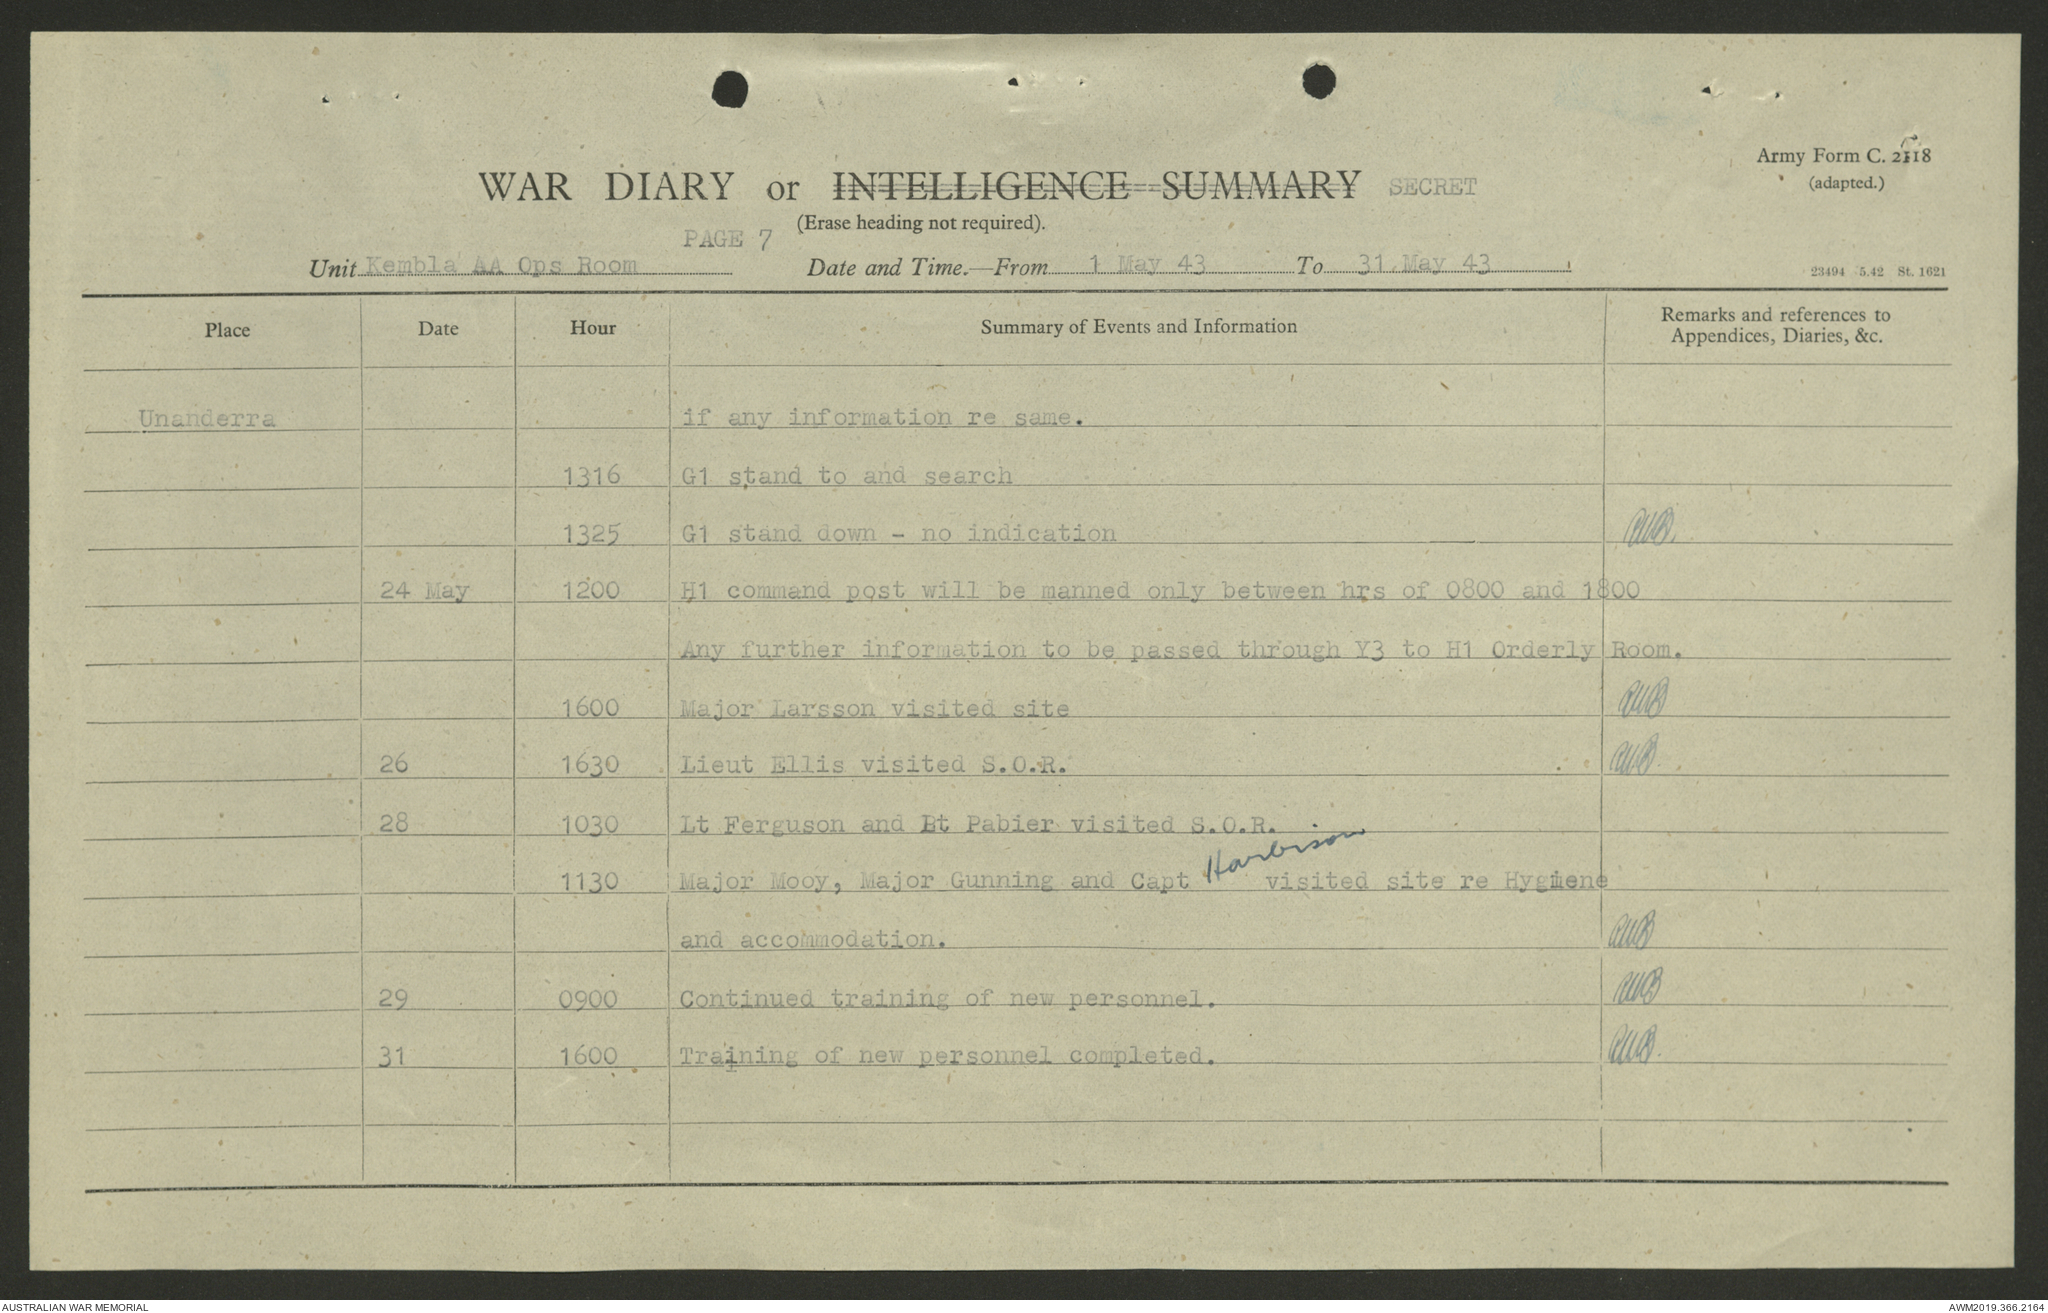 Army Form C. 2118
(adapted.)
WAR DIARY or INTELLIGENCE SUMMARY SECRET
(Erase heading not required).
PAGE 7
Unit Kembla AA Ops Room Date and Time.—From 1 May 43 To 31 May 43
23494 5.42 St. 1621
Place Date Hour Summary of Events and Information Remarks and references to
Appendices, Diaries, &c.
Unanderra if any information re same.
1316 G1 stand to and search
1325 G1 stand down - no indication
24 May 1200 H1 command post will be manned only between hrs of 0800 and 1800
Any further information to be passed through Y3 to H1 Orderly Room.
1600 Major Larsson visited site
26 1630 Lieut Ellis visited S.O.R.
28 1030 Lt Ferguson and Lt Pabier visited S.O.R.
1130 Major Mooy, Major Gunning and Capt Harbison visited site re Hygiene
and accommodation.
29 0900 Continued training of new personnel.
31 1600 Training of new personnel completed.
AUSTRALIAN WAR MEMORIAL AWM2019.366.2164